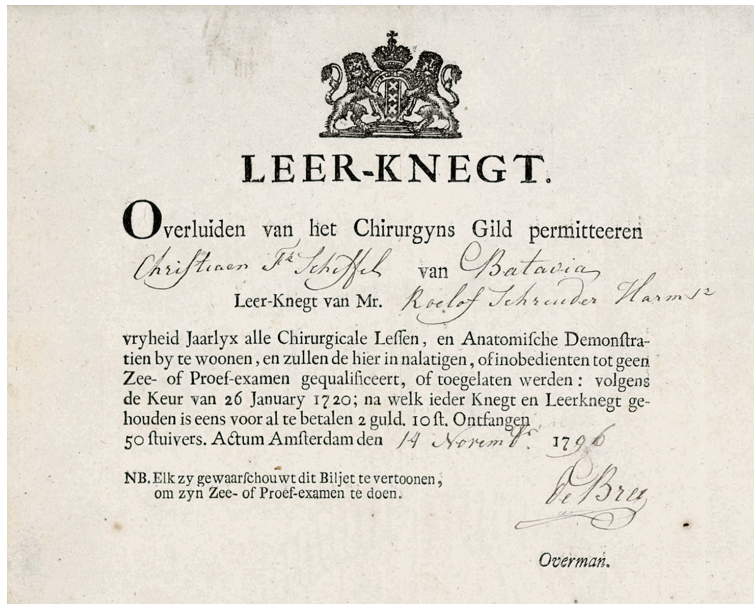 LEER-KNEGT.
Overluiden van het Chirurgyns Gild permitteeren
Christiaen Fk Scheffel van Batavia
Leer-Knegt van Mr. Roelof Schreuder Harmsz
vryheid Jaarlyx alle Chirurgicale Leſſen, en Anatomiſche Demonſtra-
tien by te woonen, en zullen de hier in nalatigen, of inobedienten tot geen
Zee- of Proef-examen gequalificeert, of toegelaten werden: volgens
de Keur van 26 January 1720; na welk ieder Knegt en Leerknegt ge-
houden is eens voor al te betalen 2 guld. 10 ſt. Ontfangen
50 ſtuivers. Actum Amſterdam den 14 Novembr. 1796
NB. Elk zy gewaarſchouwt dit Biljet te vertoonen,
om zyn Zee- of Proef-examen te doen.
de Bree
Overman.